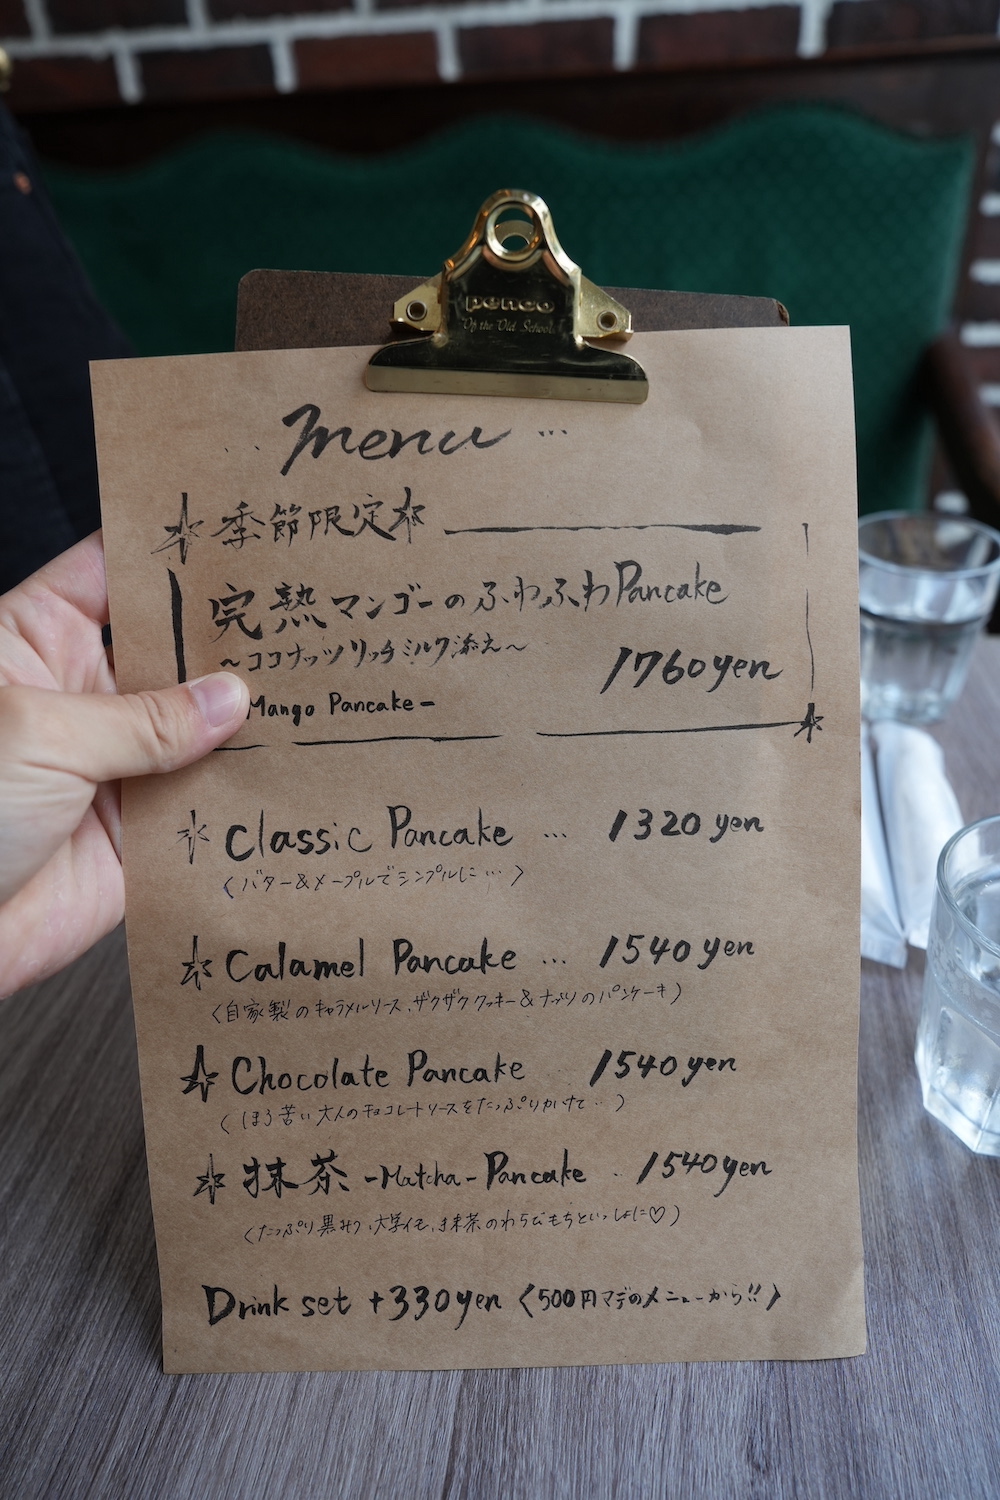 penco
"Of the Old School"
menu ...
季節限定
完熟マンゴーのふわふわPancake
～ココナッツリッチミルク添え～
1760yen
Mango Pancake-
Classic Pancake ... 1320 yen
〈バター&メープルでシンプルに…〉
Calamel Pancake ... 1540 yen
〈自家製のキャラメルソース、ザクザククッキー&ナッツのパンケーキ〉
Chocolate Pancake 1540 yen
〈ほろ苦い大人のチョコレートソースをたっぷりかけて…〉
抹茶 -Matcha- Pancake .. 1540yen
〈たっぷり黒みつ、大学イモ、抹茶のわらびもちといっしょに♡〉
Drink set +330yen 〈500円マデのメニューから!!〉